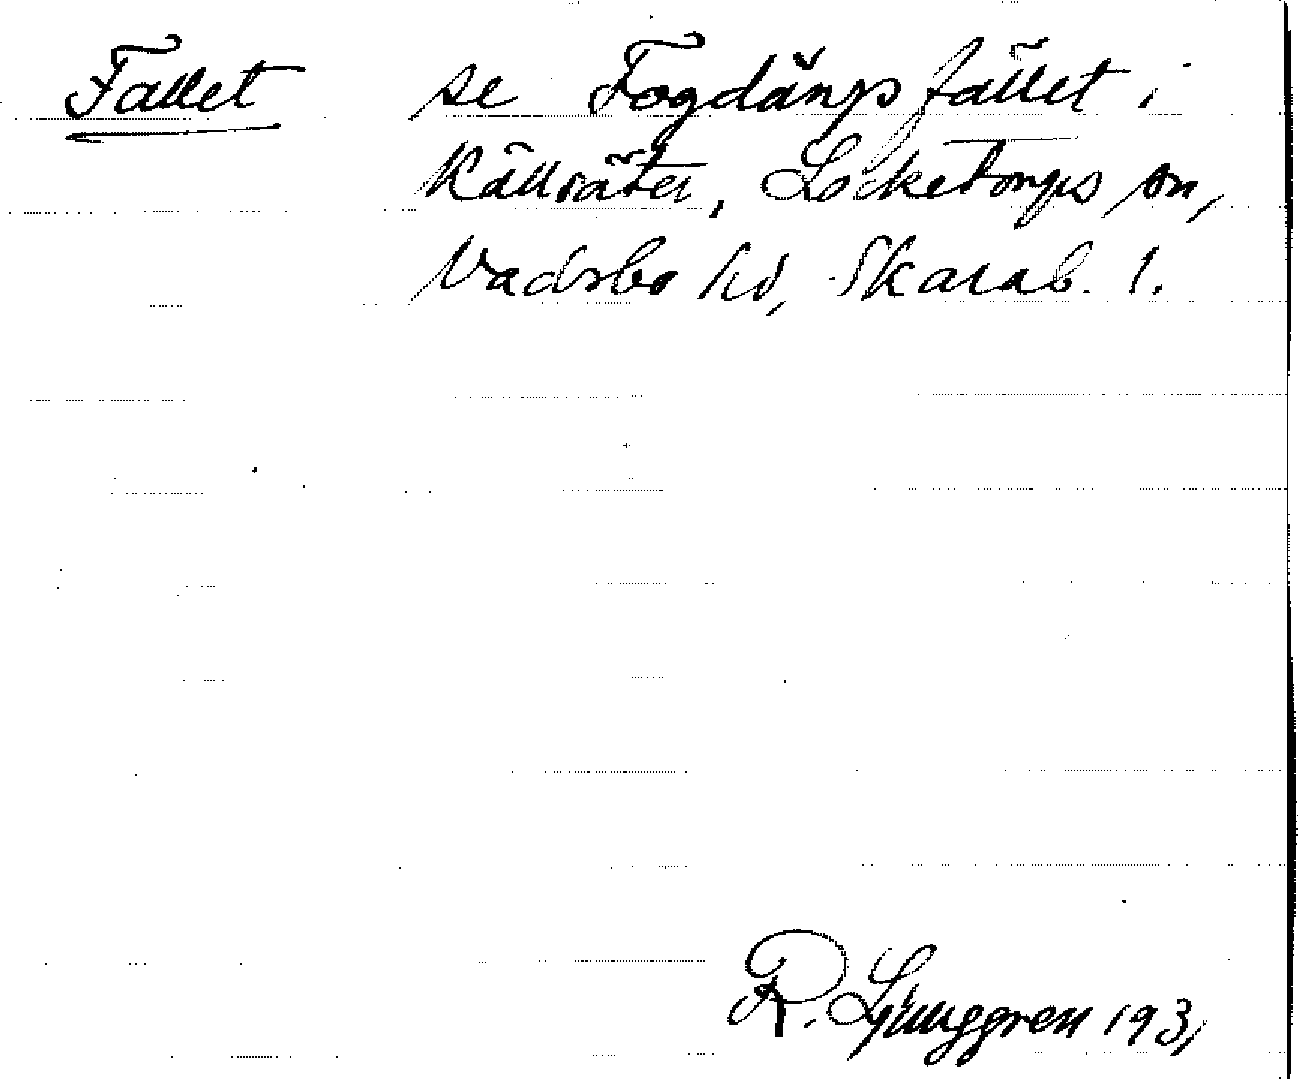 Fallet se Fogdängsfället i
Källsäter, Locketorps sn,
Vadsbo hd, Skarab. l.
R. Ljunggren 1931